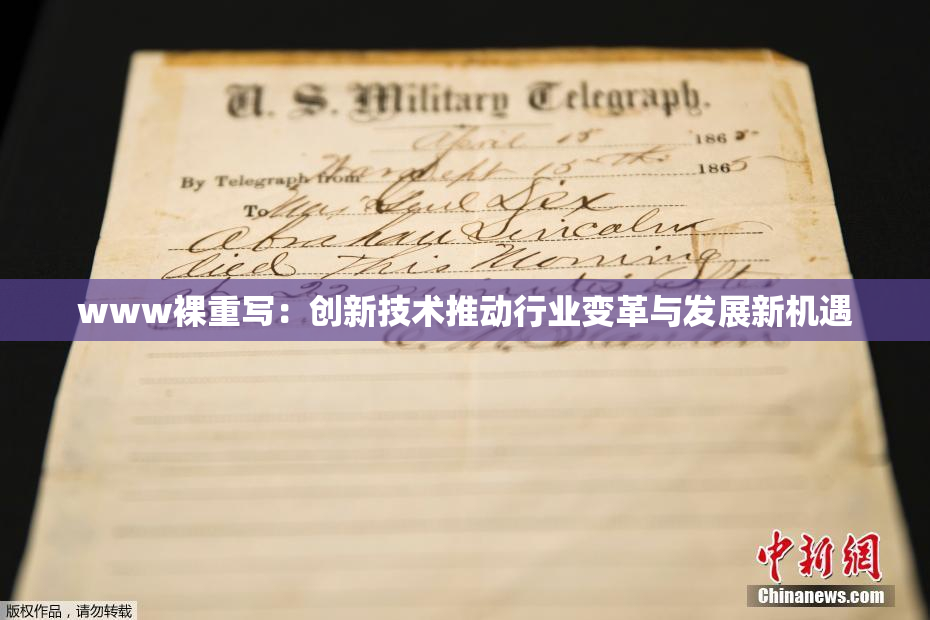 U. S. Military Telegraph.
April 15 1865
By Telegraph from War Dept 15th 1865
To Maj Genl Dix
Abraham Lincoln
died This Morning
at 22 minutes after
www裸重写：创新技术推动行业变革与发展新机遇
E. M. Stanton
中新网
Chinanews.com
版权作品，请勿转载